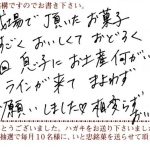 構ですのでお書き下さい。
広場で頂いたお菓子
すごくおいしくておどろく
回 息子にお土産何がい
ラインが来て まよわず
お願いしました 相変らず
とうございました。ハガキをお送り下さいまし
抽選で毎月10名様に、いと忠銘菓を送らせて頂